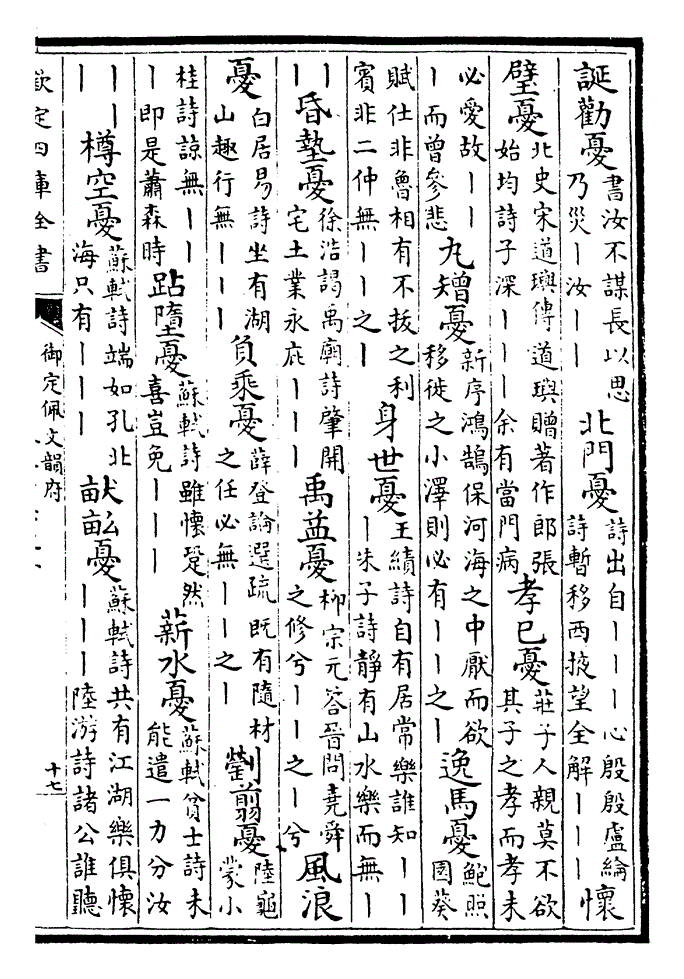 誕勸憂 書汝不謀長以思乃災丨汝丨丨 北門憂 詩出自丨丨丨心殷殷盧綸詩暫移西掖望全解丨丨丨 懷
璧憂 北史宋道璵傳道璵贈著作郎張始均詩子深丨丨丨余有當門病 孝己憂 莊子人親莫不欲其子之孝而孝未
必愛故丨丨丨而曾參悲 丸矰憂 新序鴻鵠保河海之中厭而欲移徙之小澤則必有丨丨之丨 逸馬憂 鮑照園葵
賦仕非魯相有不拔之利賓非二仲無丨丨之丨 身世憂 王績詩自有居常樂誰知丨丨丨朱子詩靜有山水樂而無丨
丨丨 昏墊憂 徐浩謁禹廟詩肇開宅土業永庇丨丨丨 禹益憂 柳宗元答晉問堯舜之修兮丨丨之丨兮 風浪
憂 白居易詩坐有湖山趣行無丨丨丨 負乘憂 薛登論選疏既有隨材之任必無丨丨之丨 劉翦憂 陸龜蒙小
桂詩諒無丨丨丨即是蕭森時 跕墮憂 蘇軾詩雖懷跫然喜豈免丨丨丨 薪水憂 蘇軾貧士詩未能遣一力分汝
丨丨丨 樽空憂 蘇軾詩端如孔北海只有丨丨丨 畎畝憂 蘇軾詩共有江湖樂俱懷丨丨丨陸游詩諸公誰聽
欽定四庫全書 御定佩文韻府 十七